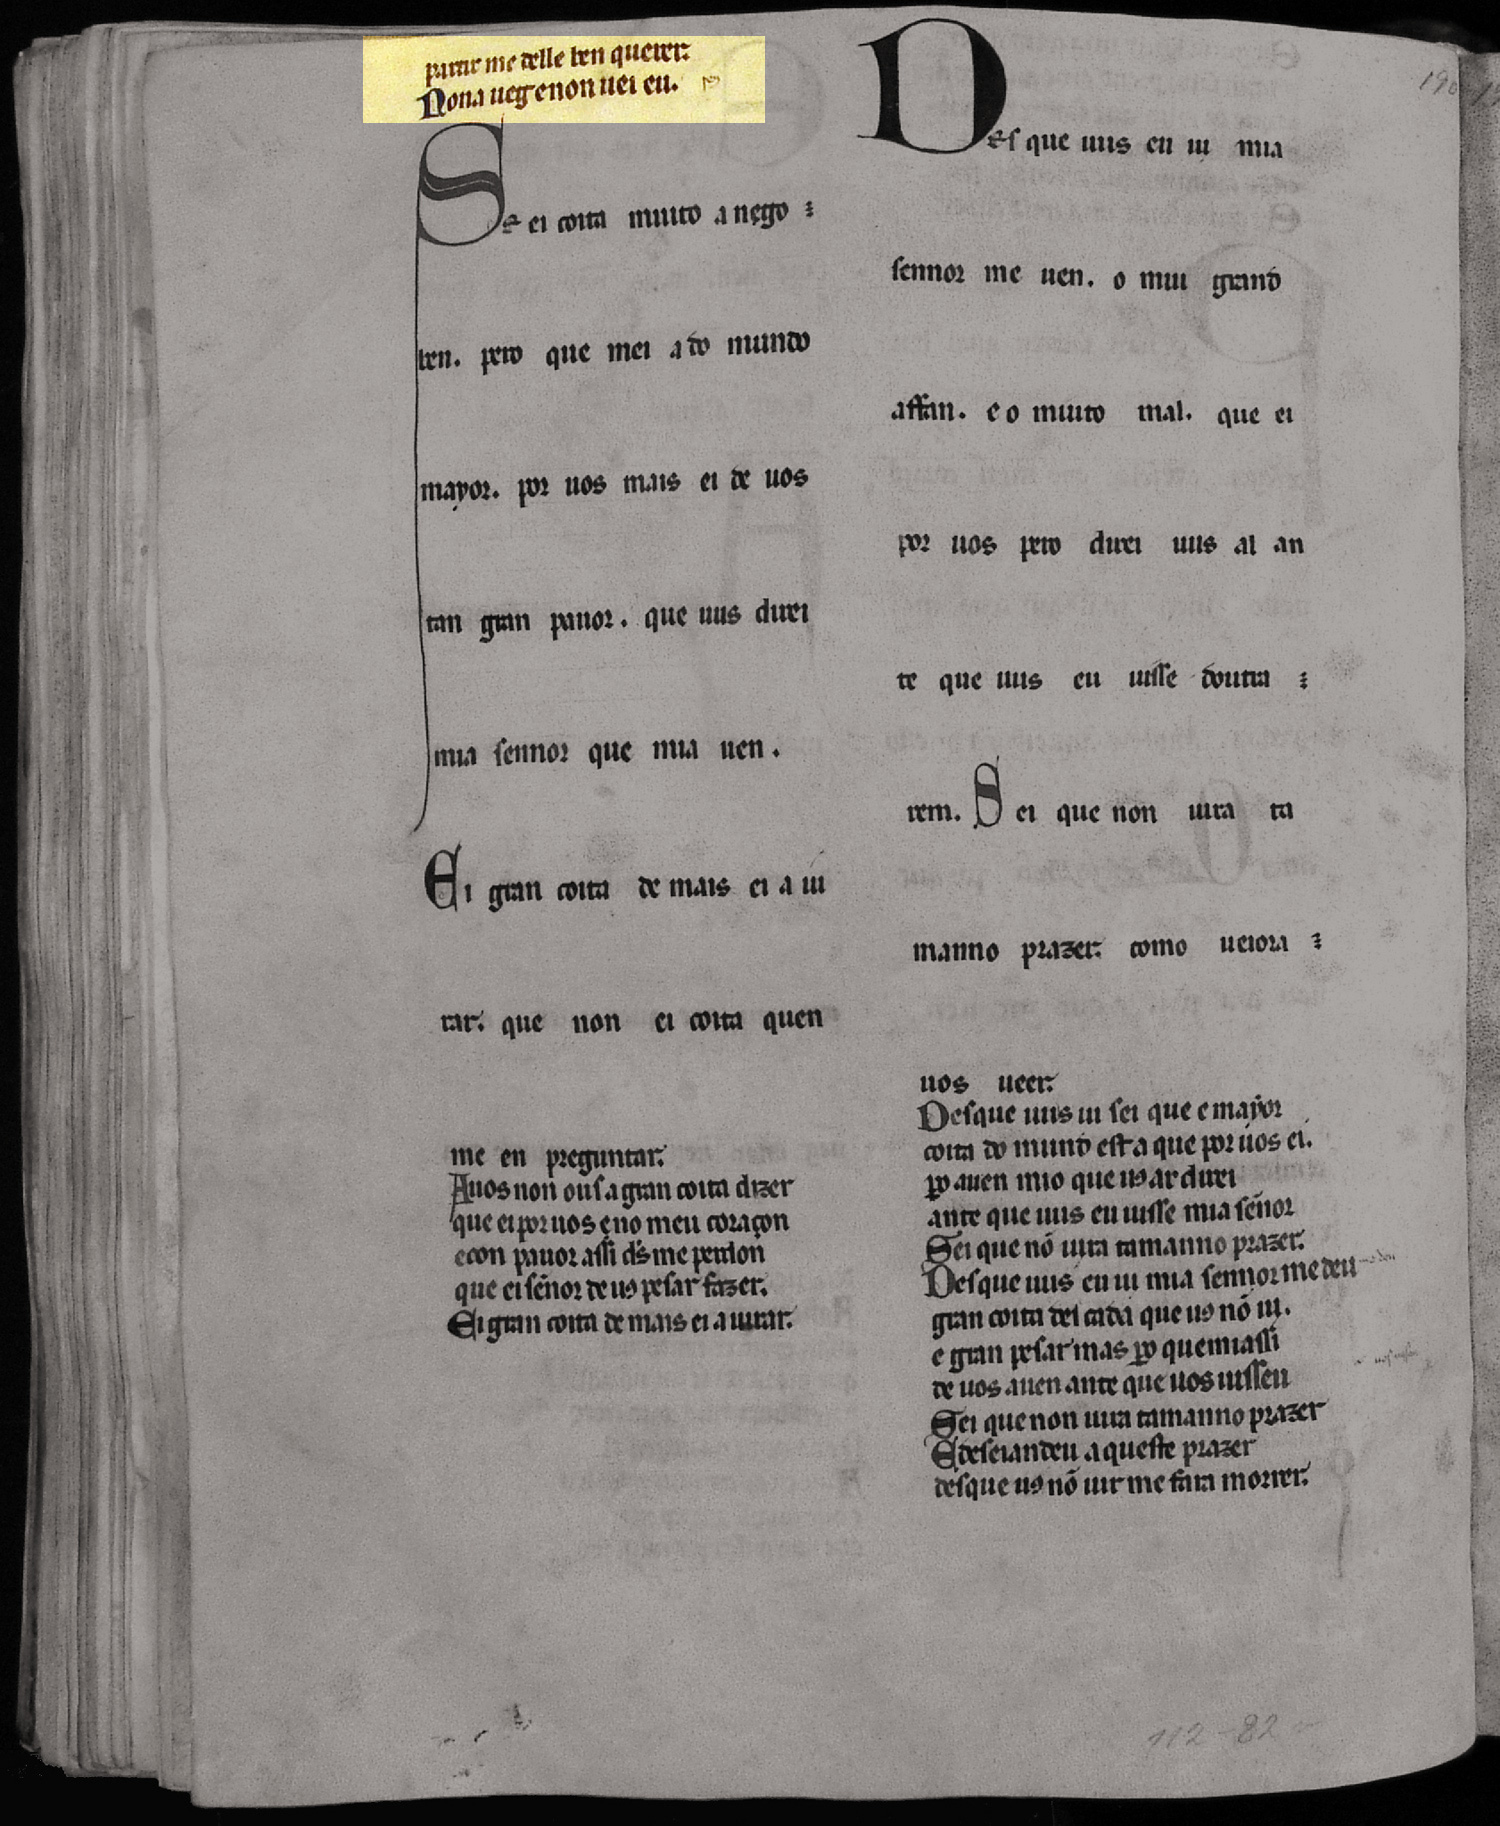 partir me delle ben querer.
Nona uegenon uei eu.
Se ei coita muito a nego
ben. pero que mei a do mundo
mayor. por uos mais ei de uos
tan gran pauor. que uus direi
mia sennor que mia uen.
Ei gran coita de mais ei a iu
rar. que non ei coita quen
me en preguntar.
Auos non ous a gran coita dizer
que ei por uos eno meu coraçon
e con pauor assi ds me perdon
que ei señor de us pesar fazer.
Ei gran coita de mais ei a iurar.
Des que uus eu ui mia
sennor me uen. o mui grand
affan. e o muito mal. que ei
por uos pero direi uus al an
te que uus eu uisse doutra
rem. Sei que non uira ta
manno prazer. como ueiora
uos ueer.
Desque uus ui sei que e mayor
coita do mund est a que por uos ei.
po auen mio que us ar direi
ante que uus eu uisse mia señor
Sei que nõ uira tamanno prazer.
Desque uus eu ui mia sennor me deu
gran coita dei cada que us nõ ui.
e gran pesar mas po quemiassi
de uos auen ante que uos uissen
Sei que non uira tamanno prazer
E deseiandeu a queste prazer
desque us nõ uir me fara morrer.
190
112-82